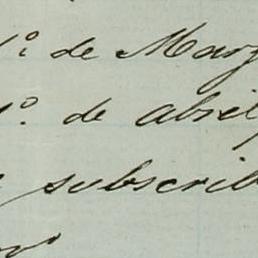 1º de Mayo
1º de abril
subscrib